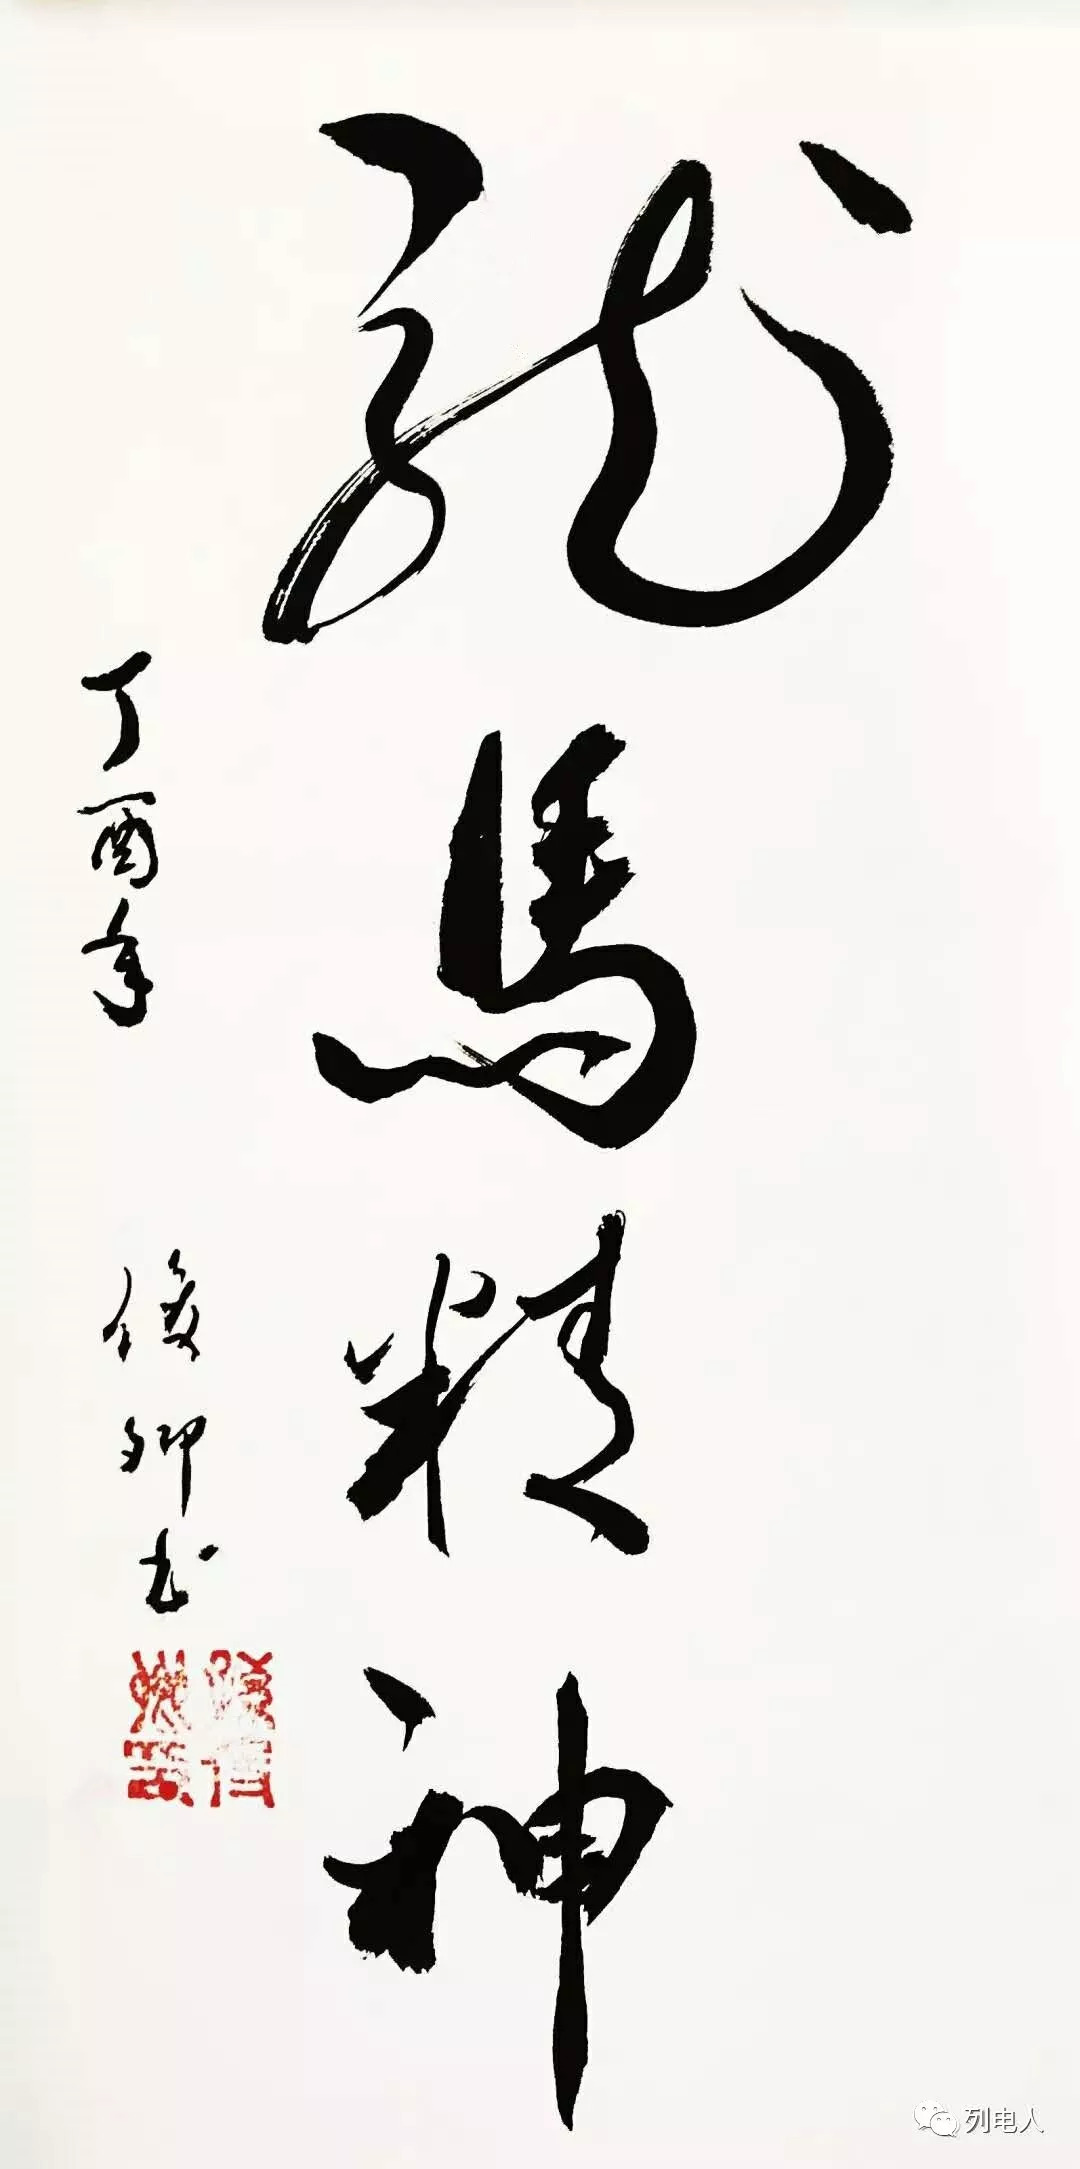 龍馬精神
丁酉年
俊卿书
列电人